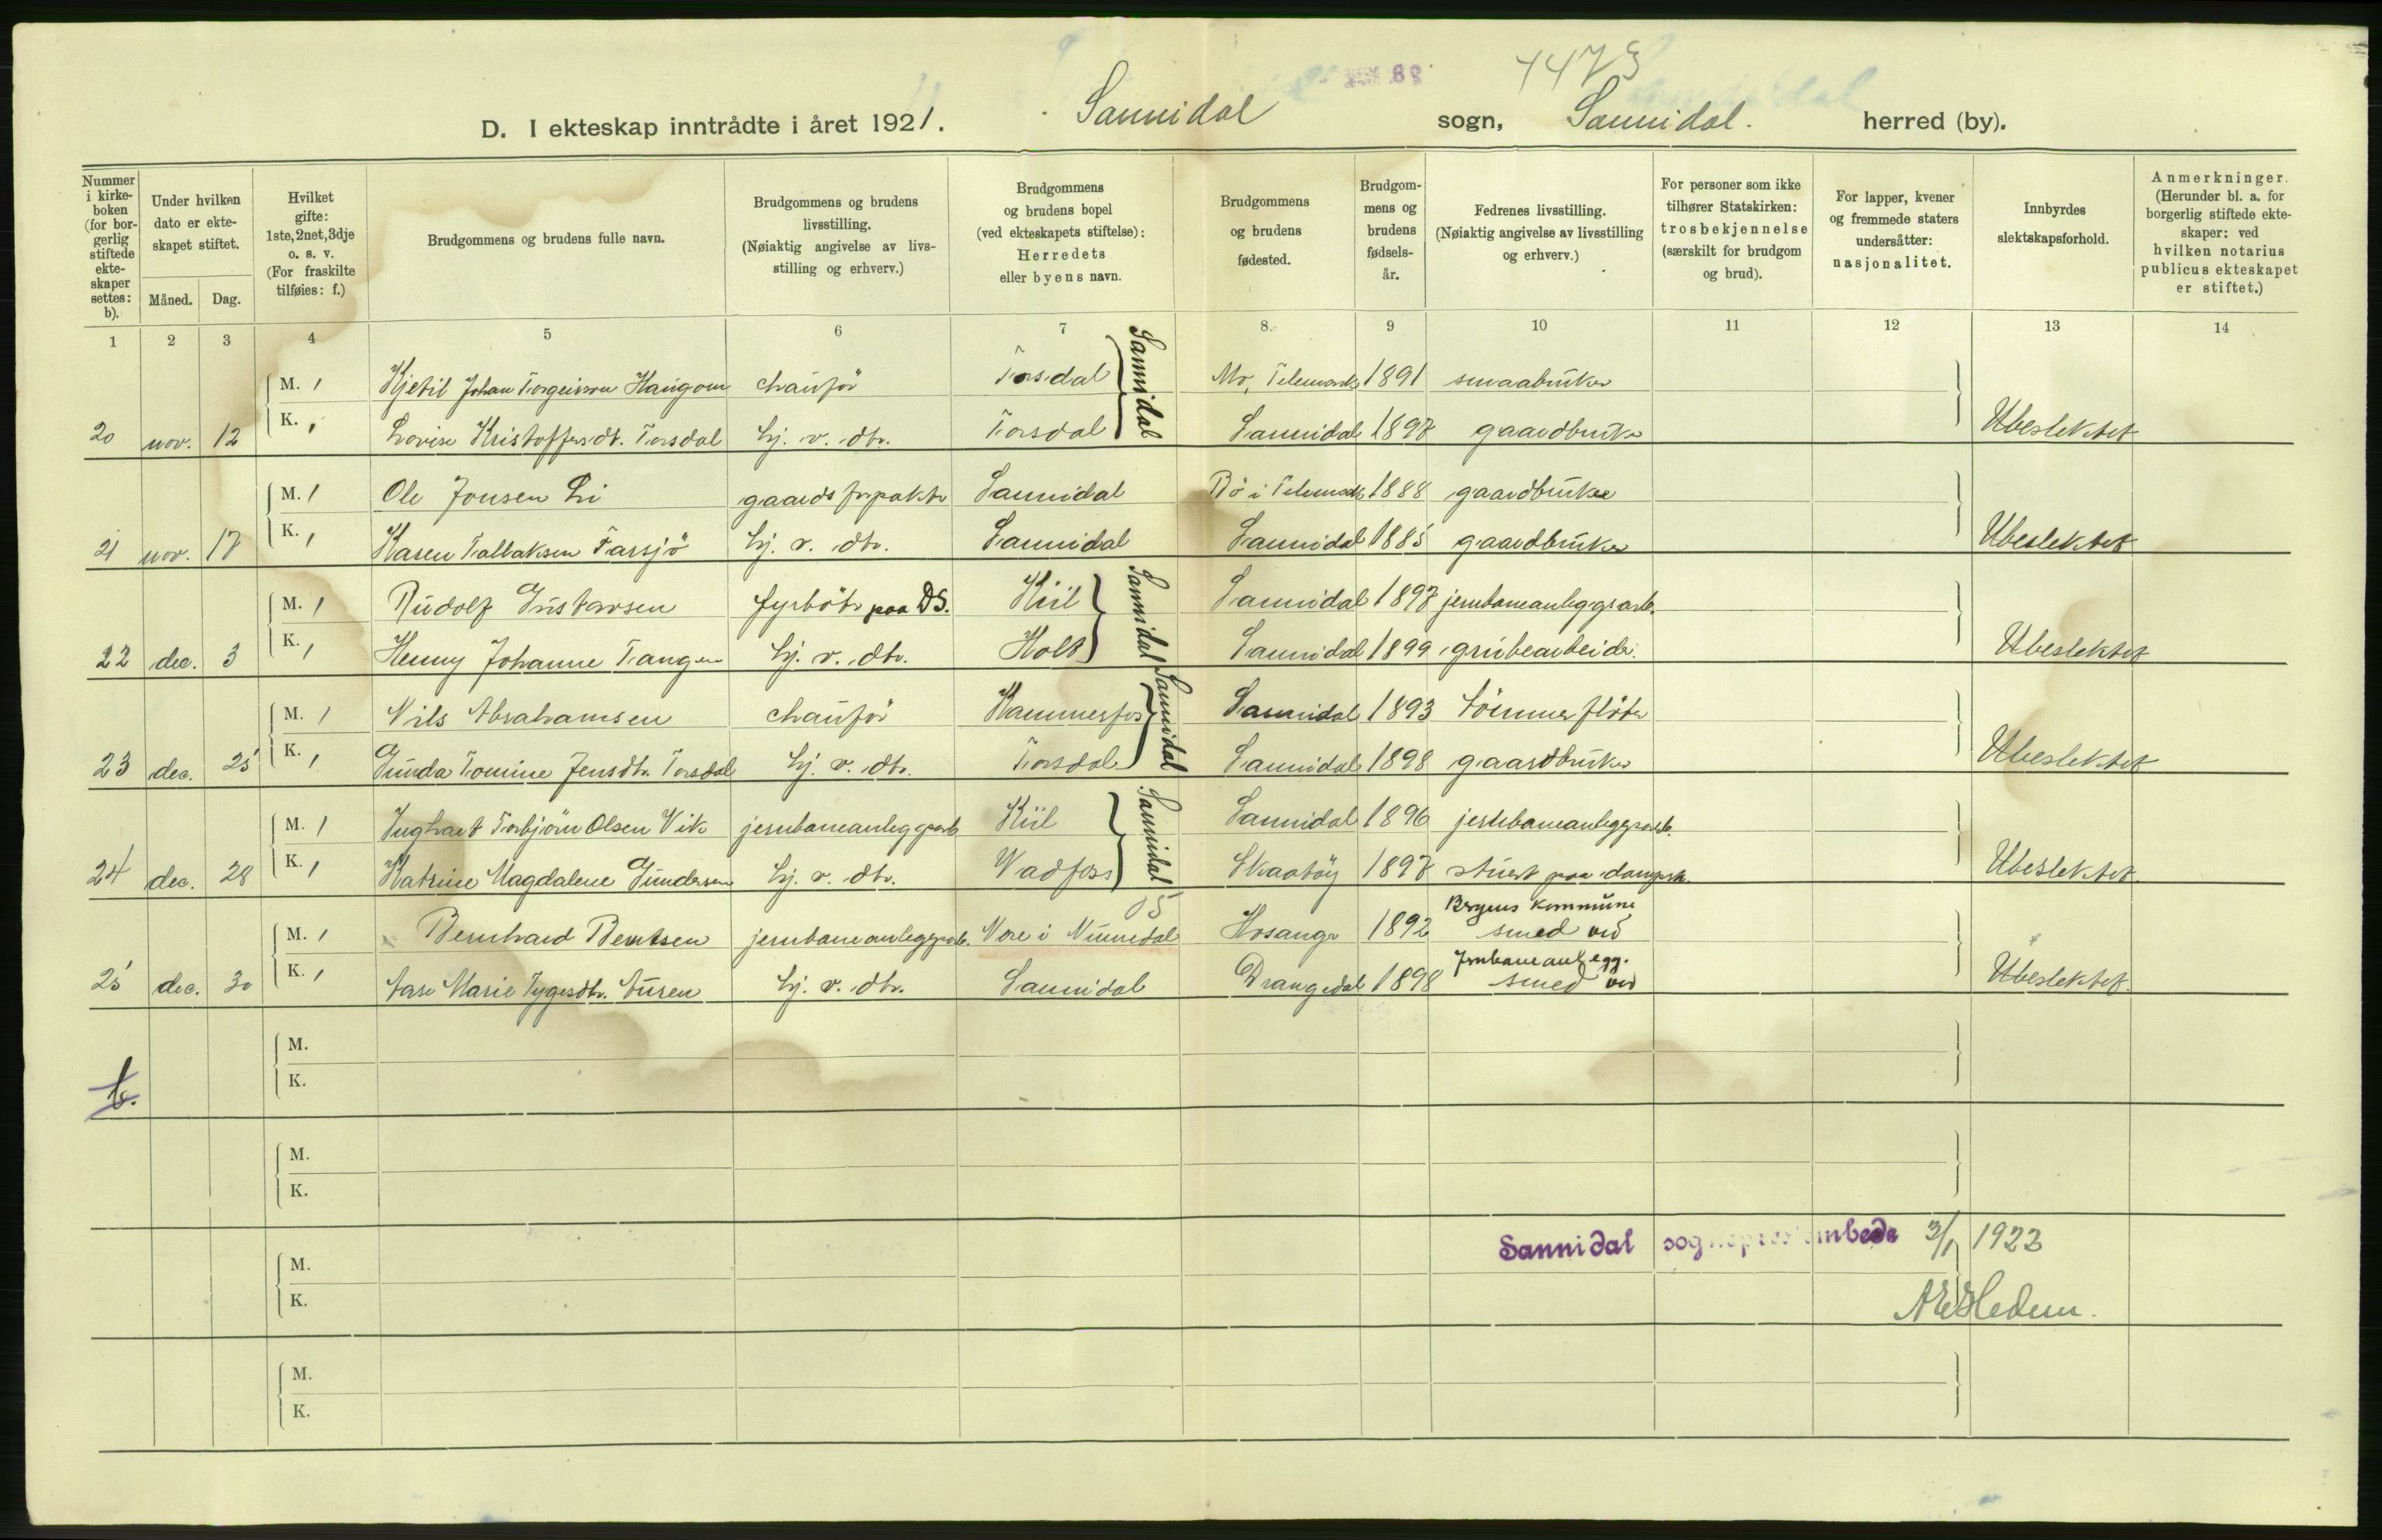 4473
D. I ekteskap inntrådte i året 1921. Sannidal sogn, Sannidal. herred (by).
Nummer i kirke-boken (for bor-gerlig stiftede ekte-skaper settes: b).
Under hvilken dato er ekte-skapet stiftet.
Måned. Dag.
Hvilket gifte: 1ste, 2net, 3dje o. s. v. (For fraskilte tilføies: f.)
Brudgommens og brudens fulle navn.
Brudgommens og brudens livsstilling. (Nøiaktig angivelse av livs-stilling og erhverv.)
Brudgommens og brudens bopel (ved ekteskapets stiftelse): Herredets eller byens navn.
Brudgommens og brudens fødested.
Brudgom-mens og brudens fødsels-år.
Fedrenes livsstilling. (Nøiaktig angivelse av livsstilling og erhverv.)
For personer som ikke tilhører Statskirken: trosbekjennelse (særskilt for brudgom og brud).
For lapper, kvener og fremmede staters undersåtter: nasjonalitet.
Innbyrdes slektskapsforhold.
Anmerkninger. (Herunder bl. a. for borgerlig stiftede ekte-skaper: ved hvilken notarius publicus ekteskapet er stiftet.)
1 2 3 4 5 6 7 8. 9 10 11 12 13 14
M. 1 Kjetil Johan Torgeirson Haugom chauför Torsdal Sannidal Mo, Telemark 1891 smaabruker
20 nov. 12 K. 1 Lovise Kristoffersdt. Torsdal hj. v. dtr. Torsdal Sannidal 1897 gaardbruker Ubeslektet
M. 1 Ole Jonsen Li gaardsforpakter Sannidal Bö i Telemark 1888 gaardbruker
21 nov. 17 K. 1 Karen Tallaksen Farsjö hj. v. dtr. Sannidal Sannidal 1885 gaardbruker Ubeslektet
M. 1 Rudolf Gustavsen fyrböter paa DS. Kiil Sannidal Sannidal 1897 jernbaneanleggsarb.
22 dec. 3 K. 1 Henny Johanne Tangen hj. v. dtr. Holt Sannidal 1899 grubearbeider. Ubeslektet
M. 1 Nils Abrahamsen chauför Hammerfos Sannidal Sannidal 1893 tömmerflöter
23 dec. 25 K. 1 Gunda Tomine Jensdtr. Torsdal hj. v. dtr. Torsdal Sannidal 1898 gaardbruker Ubeslektet
M. 1 Inghart Torbjörn Olsen Vik jernbaneanleggsarb. Kiil Sannidal Sannidal 1896 jernbaneanleggsarb.
24 dec. 28 K. 1 Katrine Magdalene Gundersen hj. v. dtr. Vadfoss Skaatöy 1897 stuert paa dampsk. Ubeslektet
M. 1 Bernhard Berntsen jernbaneanleggsarb. Nore i Numedal Hosanger 1892 smed ved Bergens kommune
25 dec. 30 K. 1 Aase Marie Tygesdtr. Auren hj. v. dtr. Sannidal Drangedal 1898 smed ved Jernbaneanlegg. Ubeslektet.
M.
K.
b.
M.
K.
Sannidal sogneprestembede 3/1 1922
M.
K.
M.
K.